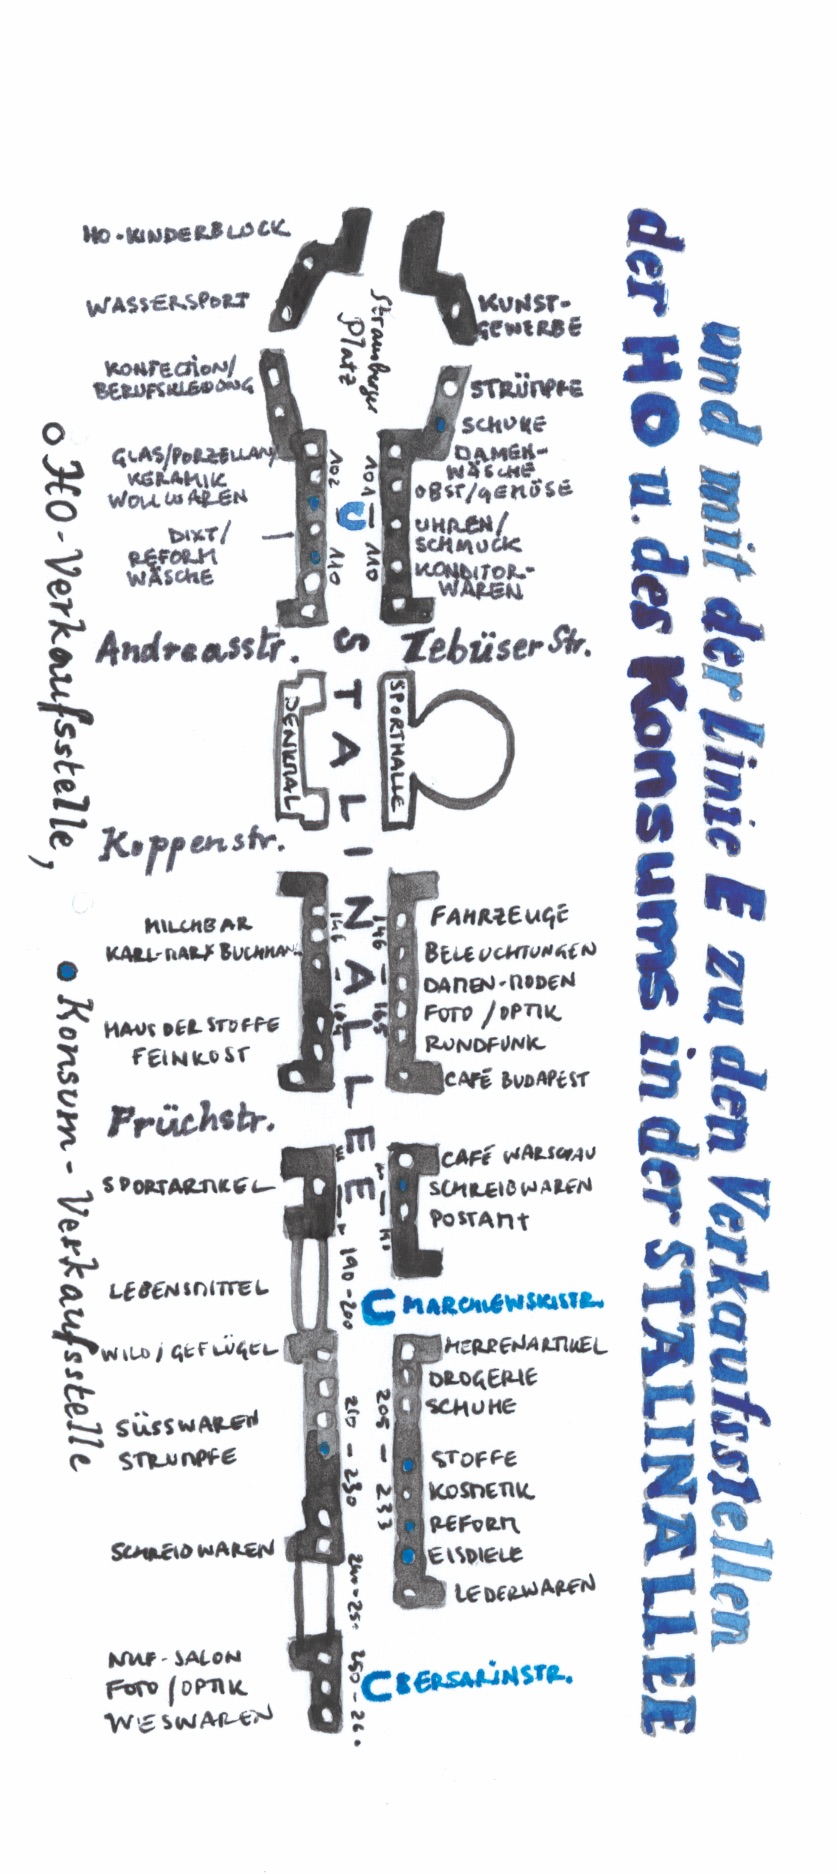 und mit der Linie E zu den Verkaufsstellen
der HO u. des Konsums in der STALINALLEE
HO-KINDERBLOCK
WASSERSPORT
KUNST-
GEWERBE
Strausberger
Platz
KONFECTION/
BERUFSKLEIDUNG
STRÜMPFE
SCHUHE
GLAS/PORZELLAN/
KERAMIK
WOLLWAREN
DIXT/
REFORM
WÄSCHE
102
110
U
101 — 110
DAMEN-
WÄSCHE
OBST/GEMÜSE
UHREN/
SCHMUCK
KONDITOR-
WAREN
Andreasstr.
Lebüser Str.
STALINALLEE
DENKMAL
SPORTHALLE
Koppenstr.
MILCHBAR
KARL-MARX BUCHHAN
HAUS DER STOFFE
FEINKOST
146 —
146 — 165
FAHRZEUGE
BELEUCHTUNGEN
DAMEN-MODEN
FOTO/OPTIK
RUNDFUNK
CAFÉ BUDAPEST
Früchstr.
SPORTARTIKEL
CAFÉ WARSCHAU
SCHREIBWAREN
POSTAMT
LEBENSMITTEL
190-200
C MARCHLEWSKISTR.
WILD/GEFLÜGEL
SÜSSWAREN
STRUMPFE
SCHREIBWAREN
210 — 230
205 — 233
HERRENARTIKEL
DROGERIE
SCHUHE
STOFFE
KOSMETIK
REFORM
EISDIELE
LEDERWAREN
240-250
NUF-SALON
FOTO/OPTIK
WIESWAREN
250-260
C BERSARINSTR.
HO-Verkaufsstelle,
Konsum-Verkaufsstelle